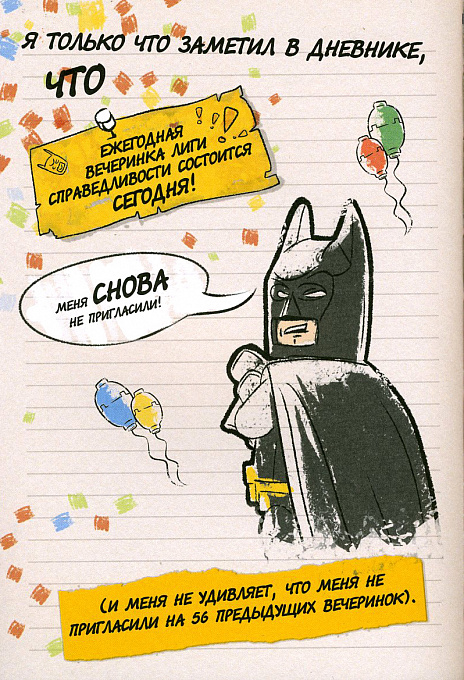 Я ТОЛЬКО ЧТО ЗАМЕТИЛ В ДНЕВНИКЕ,
ЧТО
ЕЖЕГОДНАЯ
ВЕЧЕРИНКА ЛИГИ
СПРАВЕДЛИВОСТИ СОСТОИТСЯ
СЕГОДНЯ!
МЕНЯ СНОВА
НЕ ПРИГЛАСИЛИ!
(И МЕНЯ НЕ УДИВЛЯЕТ, ЧТО МЕНЯ НЕ
ПРИГЛАСИЛИ НА 56 ПРЕДЫДУЩИХ ВЕЧЕРИНОК).